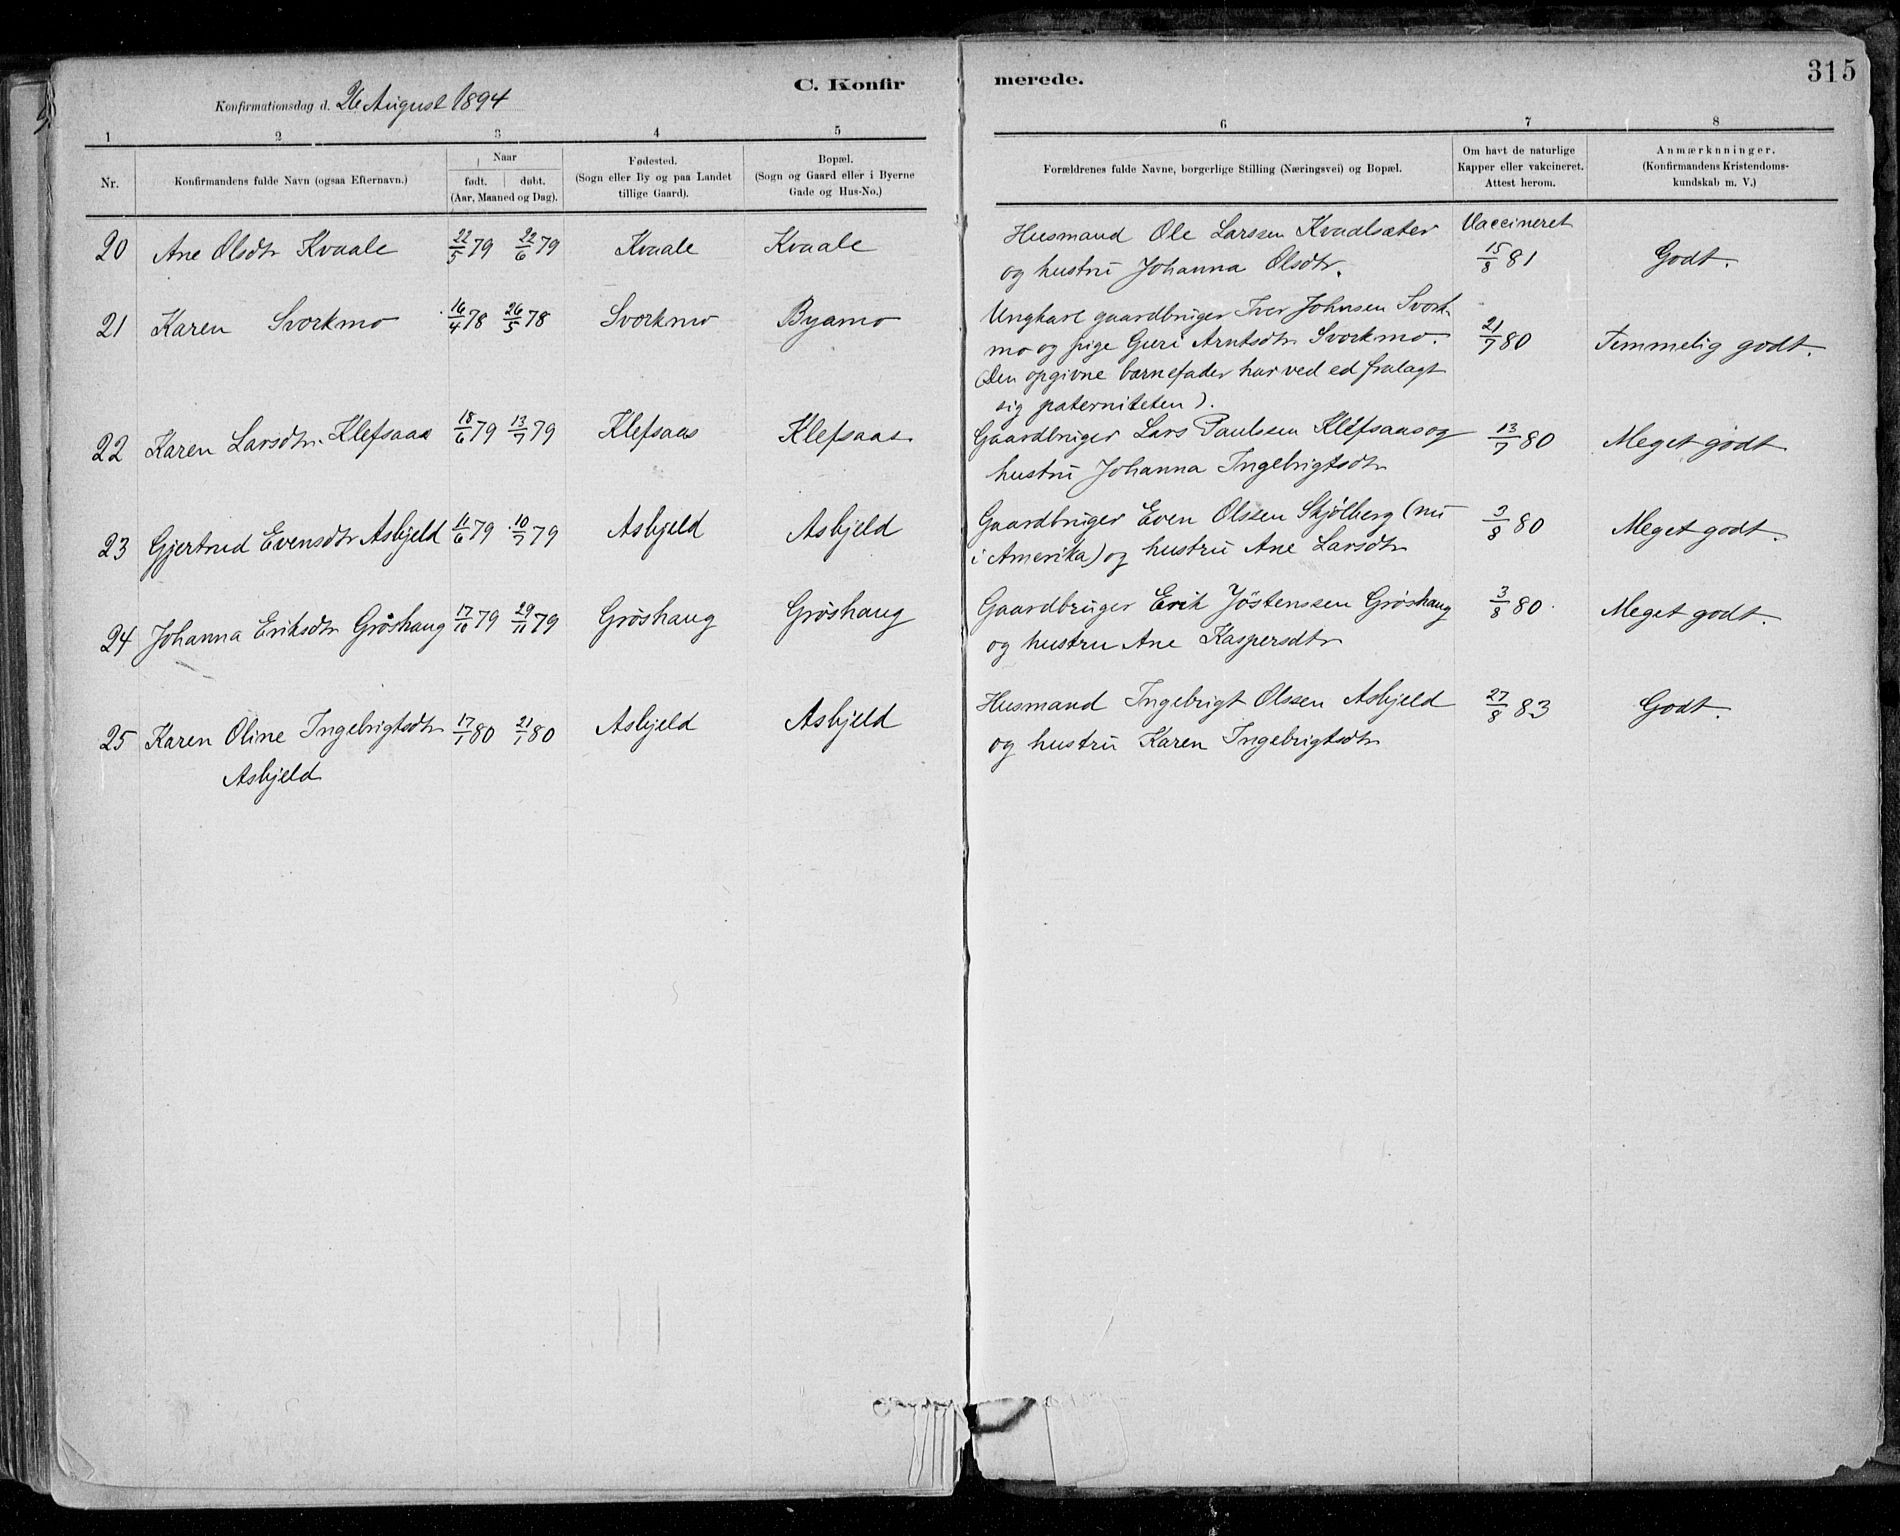 C. Konfirmerede.
315
Konfirmationsdag d. 26 August 1894
1 2 3 4 5 6 7 8
Nr. | Konfirmandens fulde Navn (ogsaa Efternavn.) | Naar født. døbt. (Aar, Maaned og Dag). | Fødested. (Sogn eller By og paa Landet tillige Gaard). | Bopæl. (Sogn og Gaard eller i Byerne Gade og Hus-No.) | Forældrenes fulde Navne, borgerlige Stilling (Næringsvei) og Bopæl. | Om havt de naturlige Kapper eller vakcineret. Attest herom. | Anmærknninger. (Konfirmandens Kristendomskundskab m. V.)
20 Ane Olsdtr Kvaale 22/5 79 22/6 79 Kvaale Kvaale Husmand Ole Larssen Kvaalsæter Vaccineret
og hustru Johanna Olsdtr. 15/8 81 Godt.
21 Karen Svorkmo 16/4 78 26/5 78 Svorkmo Byamo Ungkarl gaardbruger Iver Johnsen Svork-
mo og pige Guri Arntsdtr Svorkmo. 21/7 80 Temmelig godt.
(Den opgivne barnefader har ved ed fralagt
sig paterniteten).
22 Karen Larsdtr. Klefsaas 18/6 79 13/7 79 Klefsaas Klefsaas Gaardbruger Lars Paulssen Klefsaas og 13/7 80 Meget godt
hustru Johanna Ingebrigtsdtr
23 Gjertrud Evensdtr Asbjeld 11/6 79 10/7 79 Asbjeld Asbjeld Gaardbruger Even Olssen Skjølberg (nu 3/8 80 Meget godt.
i Amerika) og hustru Ane Larsdtr
24 Johanna Eriksdtr Grøshaug 17/10 79 29/11 79 Grøshaug Grøshaug Gaardbruger Erik Jøstenssen Grøshaug 3/8 80 Meget godt.
og hustru Ane Kaspersdtr
25 Karen Oline Ingebrigtsdtr 17/1 80 21/1 80 Asbjeld Asbjeld Husmand Ingebrigt Olssen Asbjeld 27/8 83 Godt.
Asbjeld og hustru Karen Ingebrigtsdtr